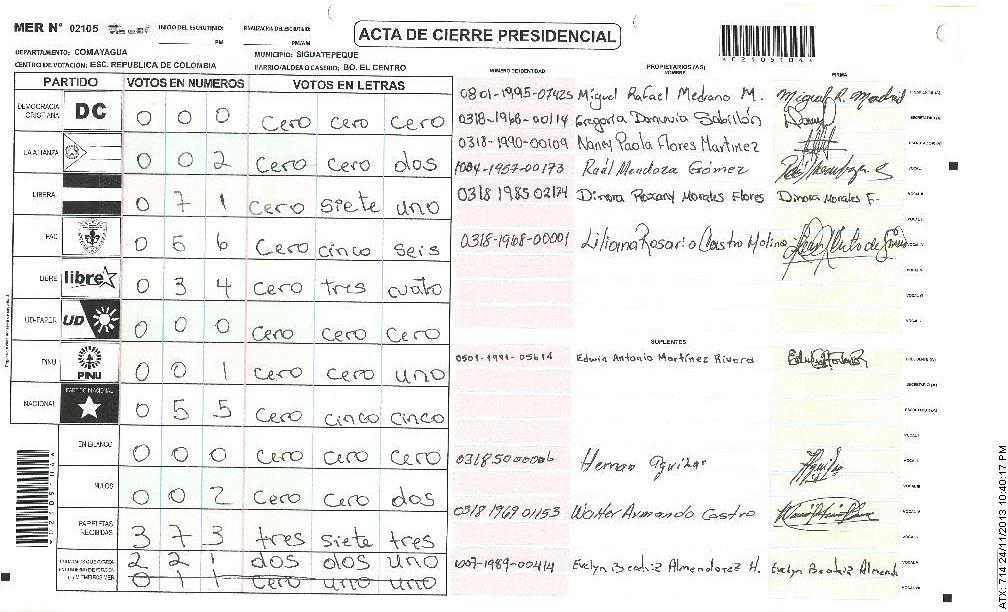 MER N° 02105 INICIO DEL ESCRUTINIO: FINALIZACION DEL ESCRUTINIO:
PM PM/AM
ACTA DE CIERRE PRESIDENCIAL
*02105104*
DEPARTAMENTO: COMAYAGUA MUNICIPIO: SIGUATEPEQUE
CENTRO DE VOTACION: ESC. REPUBLICA DE COLOMBIA BARRIO/ALDEA O CASERIO: BO. EL CENTRO
PARTIDO VOTOS EN NUMEROS VOTOS EN LETRAS
DEMOCRACIA CRISTIANA DC 0 0 0 cero cero cero
LA ALIANZA 0 0 2 cero cero dos
LIBERAL 0 7 1 cero siete uno
PAC 0 5 6 cero cinco seis
LIBRE libre 0 3 4 cero tres cuato
UD-FAPER UD 0 0 0 cero cero cero
PINU PINU 0 0 1 cero cero uno
NACIONAL PARTIDO NACIONAL 0 5 5 cero cinco cinco
EN BLANCO 0 0 0 cero cero cero
NULOS 0 0 2 cero cero dos
PAPELETAS RECIBIDAS 3 7 3 tres siete tres
2 2 1 dos dos uno
(+) MIEMBROS MER 0 1 1 cero uno uno
NUMERO DE IDENTIDAD PROPIETARIOS (AS) NOMBRE FIRMA
0801-1995-07425 Miguel Rafael Medrano M. Miguel R. Medrano PRESIDENTE (A)
0318-1968-00114 Gregoria Donuvia Sabillón SECRETARIO (A)
0318-1990-00109 Nancy Paola Flores Martinez ESCRUTADOR (A)
1004-1957-00173 Raúl Mendoza Gómez VOCAL I
0318 1985 02174 Dinora Roxany Morales Flores Dinora Morales F. VOCAL II
VOCAL III
0318-1968-00001 Liliana Rosario Castro Molina VOCAL IV
VOCAL V
VOCAL VI
VOCAL
SUPLENTES
0501-1991-05614 Edwin Antonio Martínez Rivera PRESIDENTE (A)
SECRETARIO (A)
ESCRUTADOR (A)
VOCAL I
031850 00006 Hernan Aguilar VOCAL II
VOCAL III
0318 1969 01153 Walter Armando Castro VOCAL IV
1007-1989-00414 Evelyn Beatriz Almendarez H. Evelyn Beatriz Almenda VOCAL V
VOCAL VII
*02105104*
ATX: 714 24/11/2013 10:40:17 PM